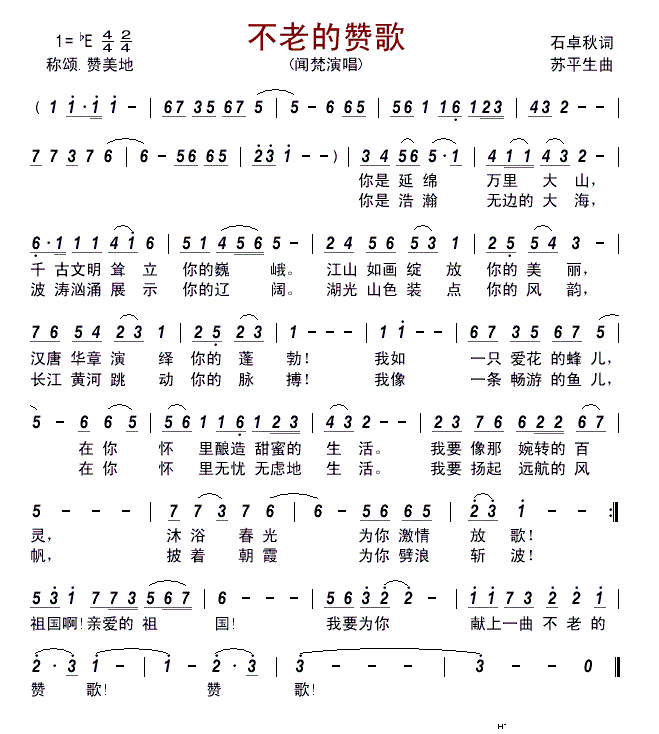 不老的赞歌
1= ♭E 4/4 2/4
石卓秋词
称颂.赞美地
(闻梵演唱)
苏平生曲
( 1 1·1 1 - | 67 35 67 5 | 5 - 6 65 | 561 1 16 123 | 43 2 - |
7 7 3 7 6 | 6 - 56 65 | 23 1 - ) | 3 4 56 5·1 | 4 11 43 2 - |
你是 延 绵 万里 大 山,
你是 浩 瀚 无边的 大 海,
6·1 11 41 6 | 51 456 5 - | 24 56 53 1 | 25 54 3 - |
千 古文明 耸 立 你的巍 峨。 江山 如画 绽 放 你的 美 丽,
波 涛汹涌 展 示 你的辽 阔。 湖光 山色 装 点 你的 风 韵,
76 54 23 1 | 25 23 | 1 - - - | 1 1 - - | 67 35 67 5 |
汉唐 华章 演 绎 你的 蓬 勃! 我如 一只 爱花 的蜂 儿,
长江 黄河 跳 动 你的 脉 搏! 我像 一条 畅游 的鱼 儿,
5 - 6 65 | 56 116 123 | 43 2 - - | 23 76 622 67 |
在你 怀 里酿造 甜蜜的 生 活。 我要 像那 婉转的 百
在你 怀 里无忧 无虑地 生 活。 我要 扬起 远航的 风
5 - - - | 77 3 76 | 6 - 56 65 | 23 1 - :|
灵, 沐浴 春光 为你 激情 放 歌!
帆, 披着 朝霞 为你 劈浪 斩 波!
53 1 773 567 | 6 - - - | 56 32 2 - | 11 77 22 1 |
祖国啊!亲爱的 祖 国! 我要为你 献上一曲 不 老 的
2·3 1 - | 1 - 2·3 | 3 - - - | 3 - - 0 ‖
赞 歌! 赞 歌!